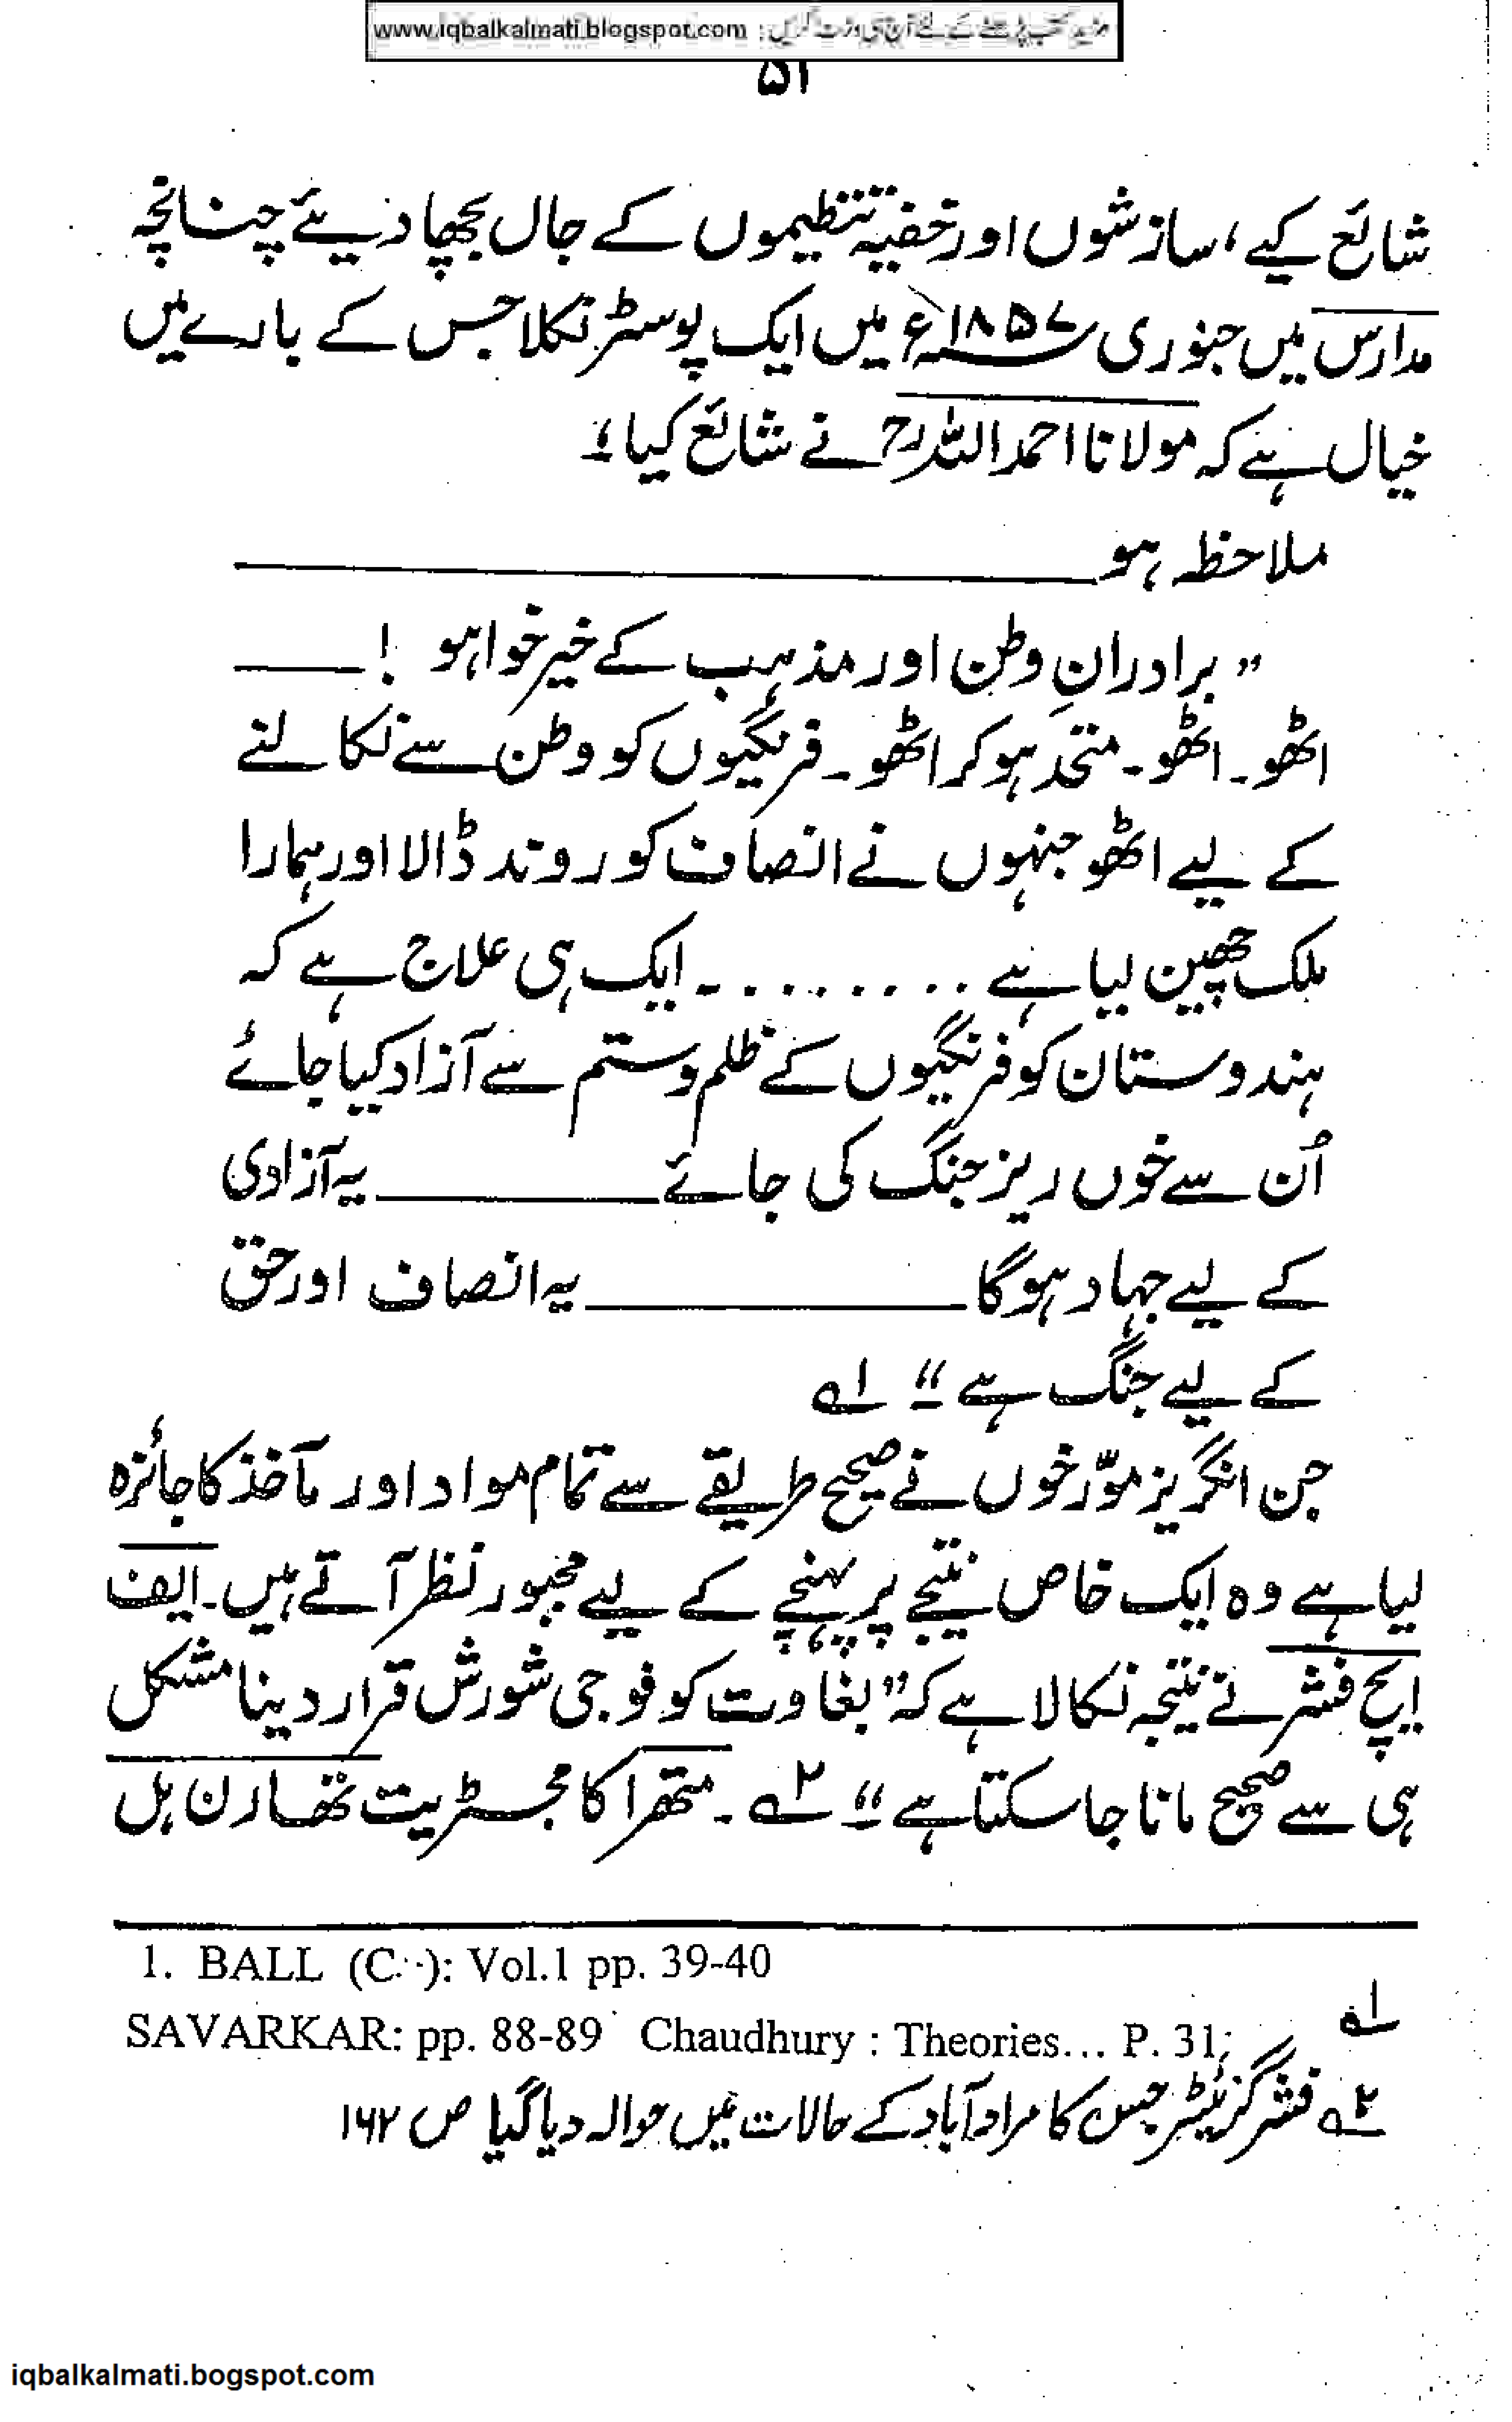 www.iqbalkalmati.blogspot.com : مزید کتب پڑھنے کے لئے آج ہی وزٹ کریں
۵۱
شائع کیے، سازشوں اور خفیہ تنظیموں کے جال بچھا دیئے چنانچہ
مدارس میں جنوری ۱۸۵۷ء میں ایک پوسٹر نکلا جس کے بارے میں
خیال ہے کہ مولانا احمد اللہؒ نے شائع کیا۔
ملاحظہ ہو ــــــــــــ
" برادرانِ وطن اور مذہب کے خیر خواہو ! ــــــ
اٹھو۔ اٹھو۔ متحد ہو کر اٹھو۔ فرنگیوں کو وطن سے نکالنے
کے لیے اٹھو جنہوں نے انصاف کو روند ڈالا اور ہمارا
ملک چھین لیا ہے ........۔ ایک ہی علاج ہے کہ
ہندوستان کو فرنگیوں کے ظلم و ستم سے آزاد کیا جائے
اُن سے خوں ریز جنگ کی جائے ــــــــــــ یہ آزادی
کے لیے جہاد ہو گا ــــــــــــ یہ انصاف اور حق
کے لیے جنگ ہے۔" ۱؎
جن انگریز مورّخوں نے صحیح طریقے سے تمام مواد اور مآخذ کا جائزہ
لیا ہے وہ ایک خاص نتیجے پر پہنچے کے لیے مجبور نظر آتے ہیں۔ ایف
ایچ فشر نے نتیجہ نکالا ہے کہ "بغاوت کو فوجی شورش قرار دینا مشکل
ہی سے صحیح مانا جا سکتا ہے۔" ۲؎ ۔ متھرا کا مجسٹریٹ تھارن ہل
1. BALL (C..): Vol.1 pp. 39-40
۱؎
SAVARKAR: pp. 88-89 Chaudhury : Theories... P. 31;
۲؎ فشر گزیٹیر جس کا مراد آباد کے حالات میں حوالہ دیا گیا ص ۱۶۲
iqbalkalmati.bogspot.com